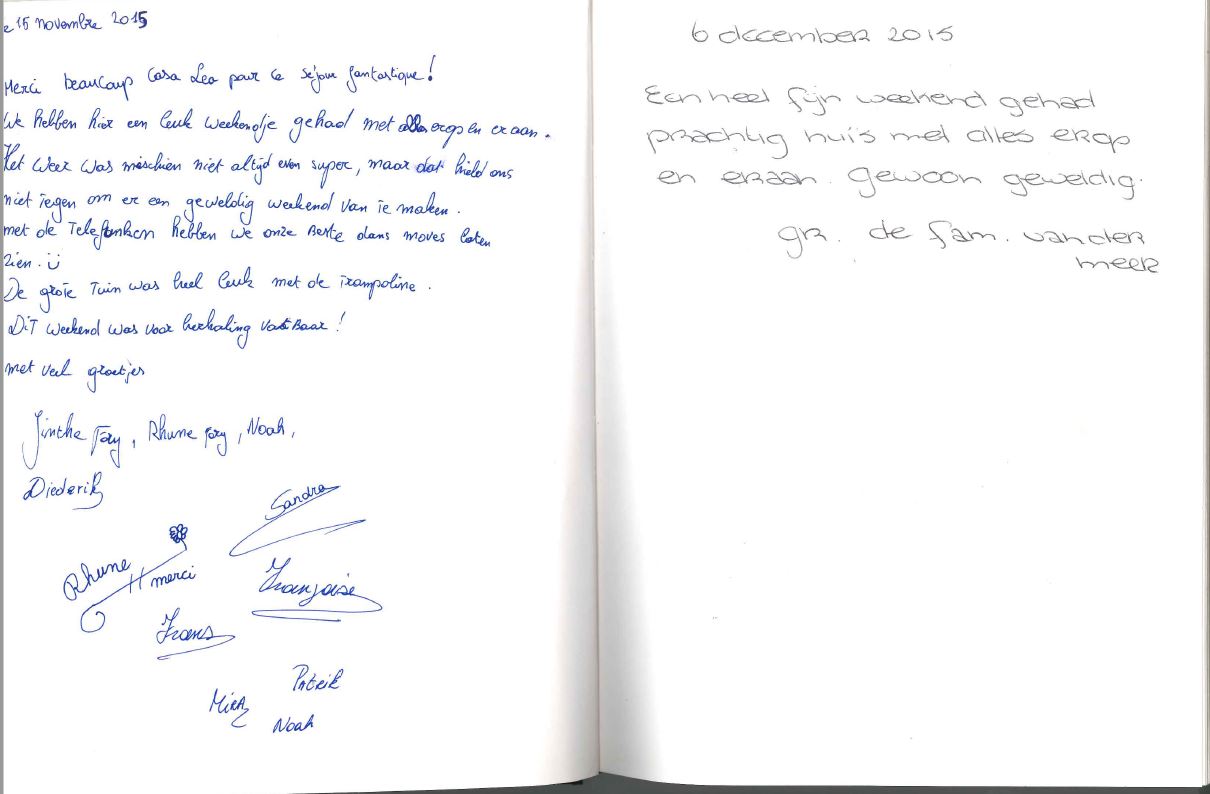 e 15 novembre 2015
Merci beaucoup Casa Leo pour ce séjour fantastique!
We hebben hier een leuk weekendje gehad met alles erop en er aan.
Het weer was mischien niet altijd even super, maar dat hield ons
niet tegen om er een geweldig weekend van te maken.
met de Telefonken hebben we onze beste dans moves laten
zien. ü
De grote Tuin was heel leuk met de trampoline.
Dit weekend was voor herhaling vatbaar!
met veel groetjes
Jinthe Fory, Rhune Fory, Noah,
Diederik
Sandra
Rhune
merci
Françoise
Frans
Patrik
Noah
6 december 2015
Een heel fijn weekend gehad
prachtig huis met alles erop
en eraan. Gewoon geweldig.
gr. de fam. van der
meer